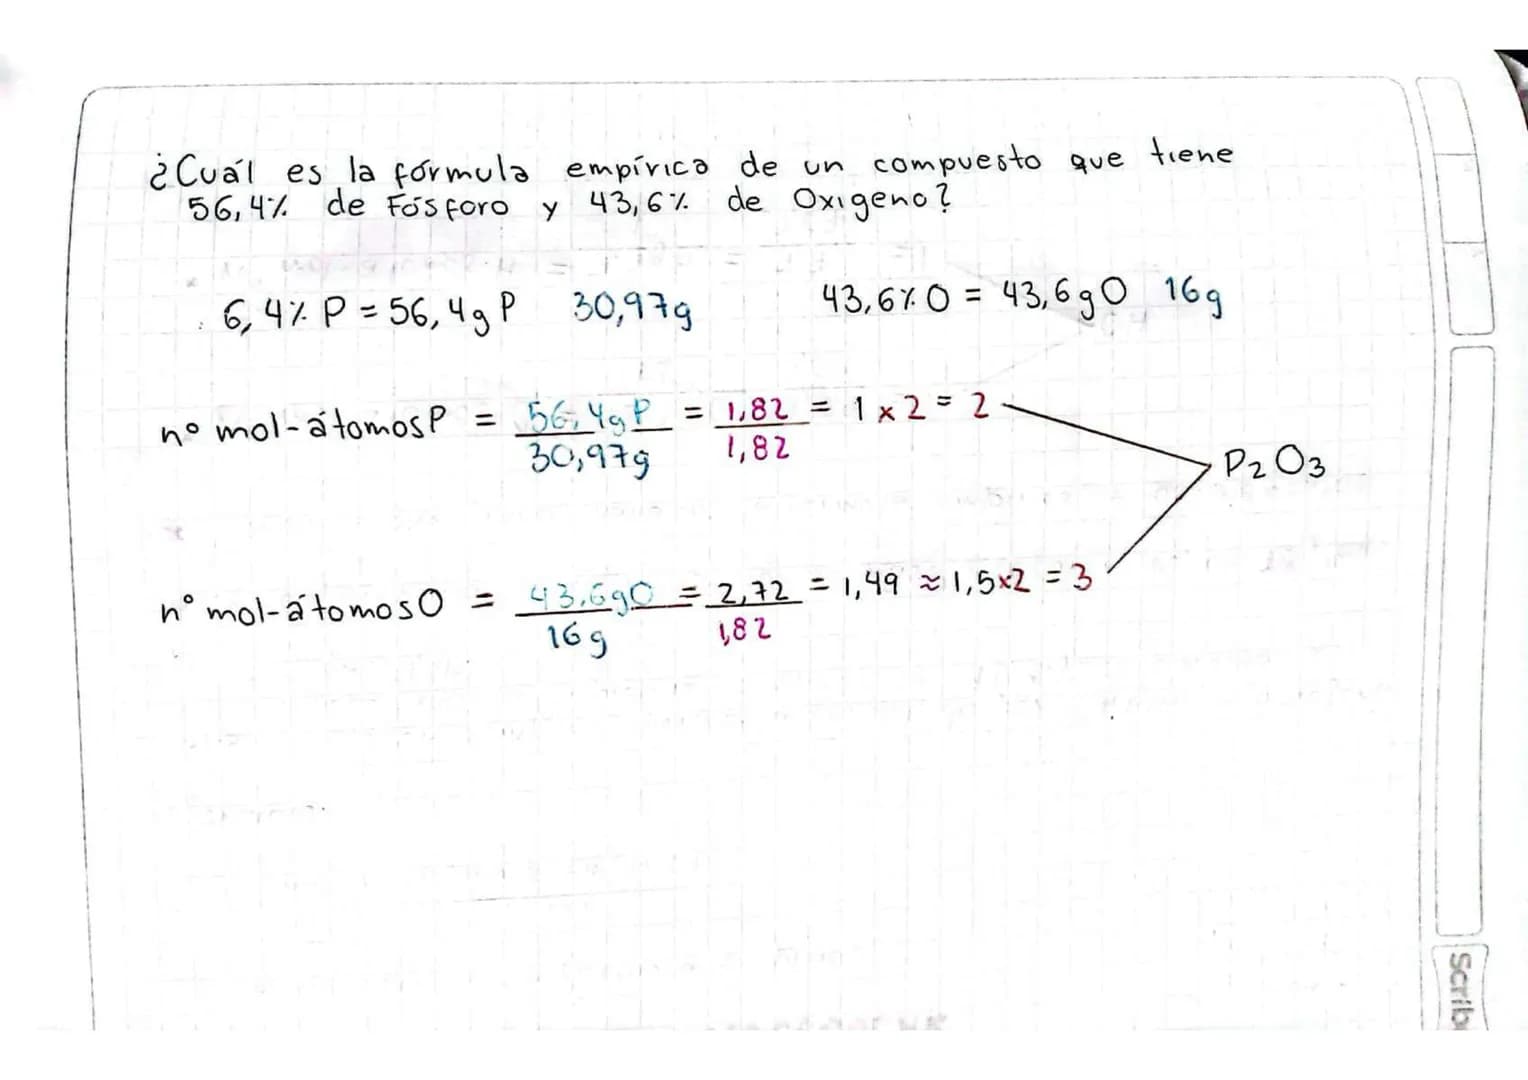 ¿Cuál es la fórmula empírica de un compuesto que tiene
56,4% de Fósforo y 43,6% de Oxigeno?
6,4% P = 56,4g P 30,97g 43,6% O = 43,6gO 16g
nº mol-átomosP = 56,4gP / 30,97g = 1,82 / 1,82 = 1 x 2 = 2
P2O3
nº mol-átomosO = 43,6gO / 16g = 2,72 / 1,82 = 1,49 ≈ 1,5x2 = 3
Scrib